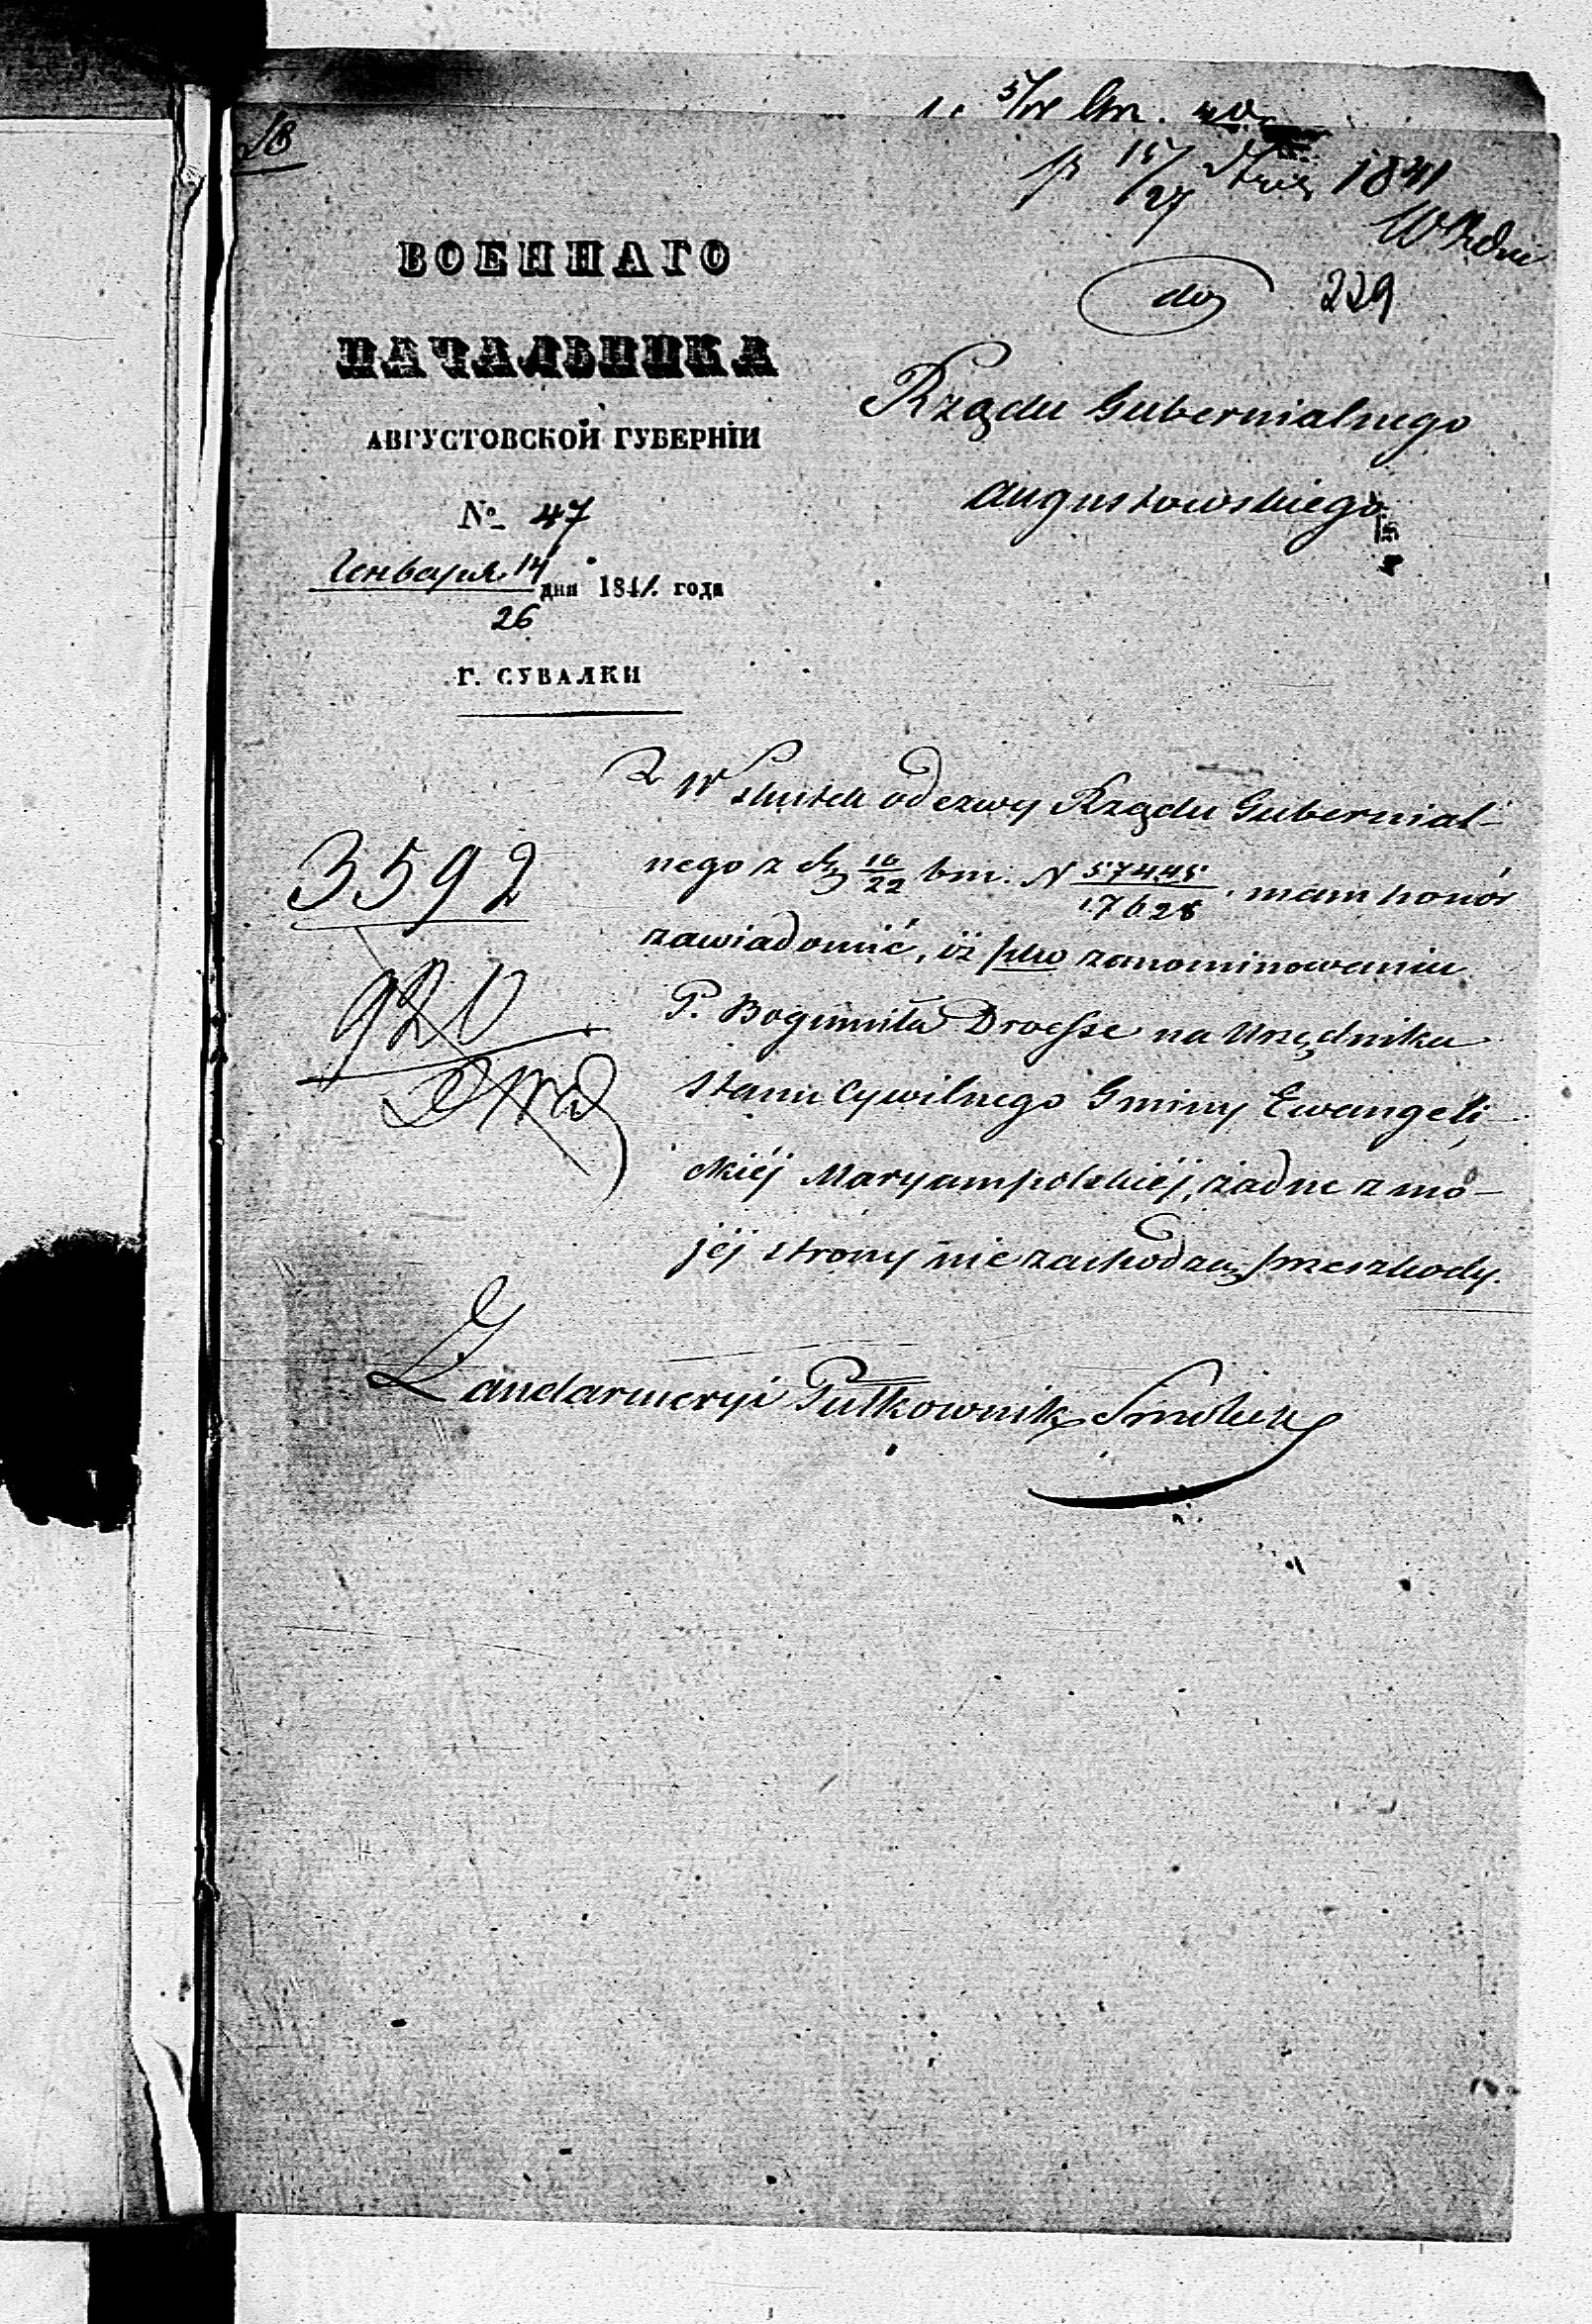 18
15/27 1841
229
ВОЕННАГО
НАЧАЛЬНИКА
АВГУСТОВСКОЙ ГУБЕРНІИ
№ 47
Генваря 14/26 дня 1841. года
Г. СУВАЛКИ
do
Rządu Gubernialnego
Augustowskiego
W skutek odezwy Rządu Gubernial-
nego z d. 10/22 bm. N 57445/17628. mam honór
zawiadomić, iż plko zanominowaniu
P. Bogumiła Droesse na Urzędnika
Stanu Cywilnego Gminy Ewangeli-
ckiéj Maryampolskiéj, żadne z mo-
jéj strony nie zachodzą przeszkody.
3592
920
Żandarmeryi Pułkownik